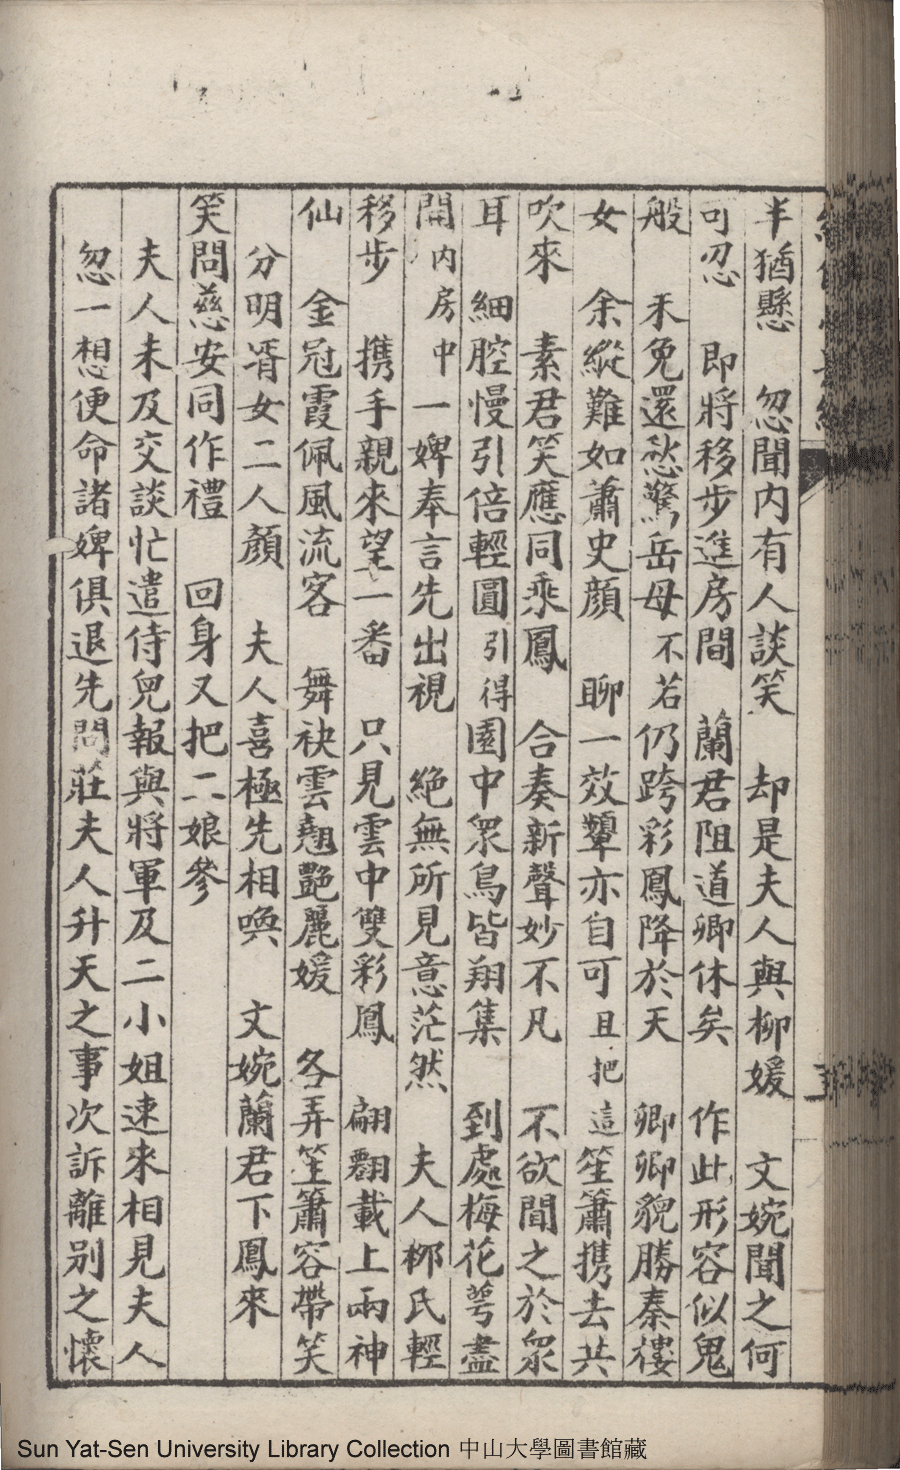 半猶懸　忽聞内有人談笑　却是夫人與柳媛　文婉聞之何
可忍　即將移步進房間　蘭君阻道卿休矣　作此形容似鬼
般　未免還愁驚岳母　不若仍跨彩鳳降於天　卿卿貌勝秦樓
女　余縱難如蕭史顔　聊一效顰亦自可　且把這笙簫携去共
吹來　素君笑應同乘鳳　合奏新聲妙不凡　不欲聞之於衆
耳　細腔慢引倍輕圓　引得園中衆鳥皆翔集　到處梅花萼盡
開　内房中一婢奉言先出視　絶無所見意茫然　夫人柳氏輕
移步　携手親來望一番　只見雲中雙彩鳳　翩翻載上兩神
仙　金冠霞佩風流客　舞袂雲翹艷麗媛　各弄笙簫容帶笑
分明壻女二人顔　夫人喜極先相喚　文婉蘭君下鳳來
笑問慈安同作禮　回身又把二娘參
夫人未及交談忙遣侍兒報與將軍及二小姐速來相見夫人
忽一想便命諸婢俱退先問莊夫人升天之事次訴離別之懷
Sun Yat-Sen University Library Collection 中山大學圖書館藏